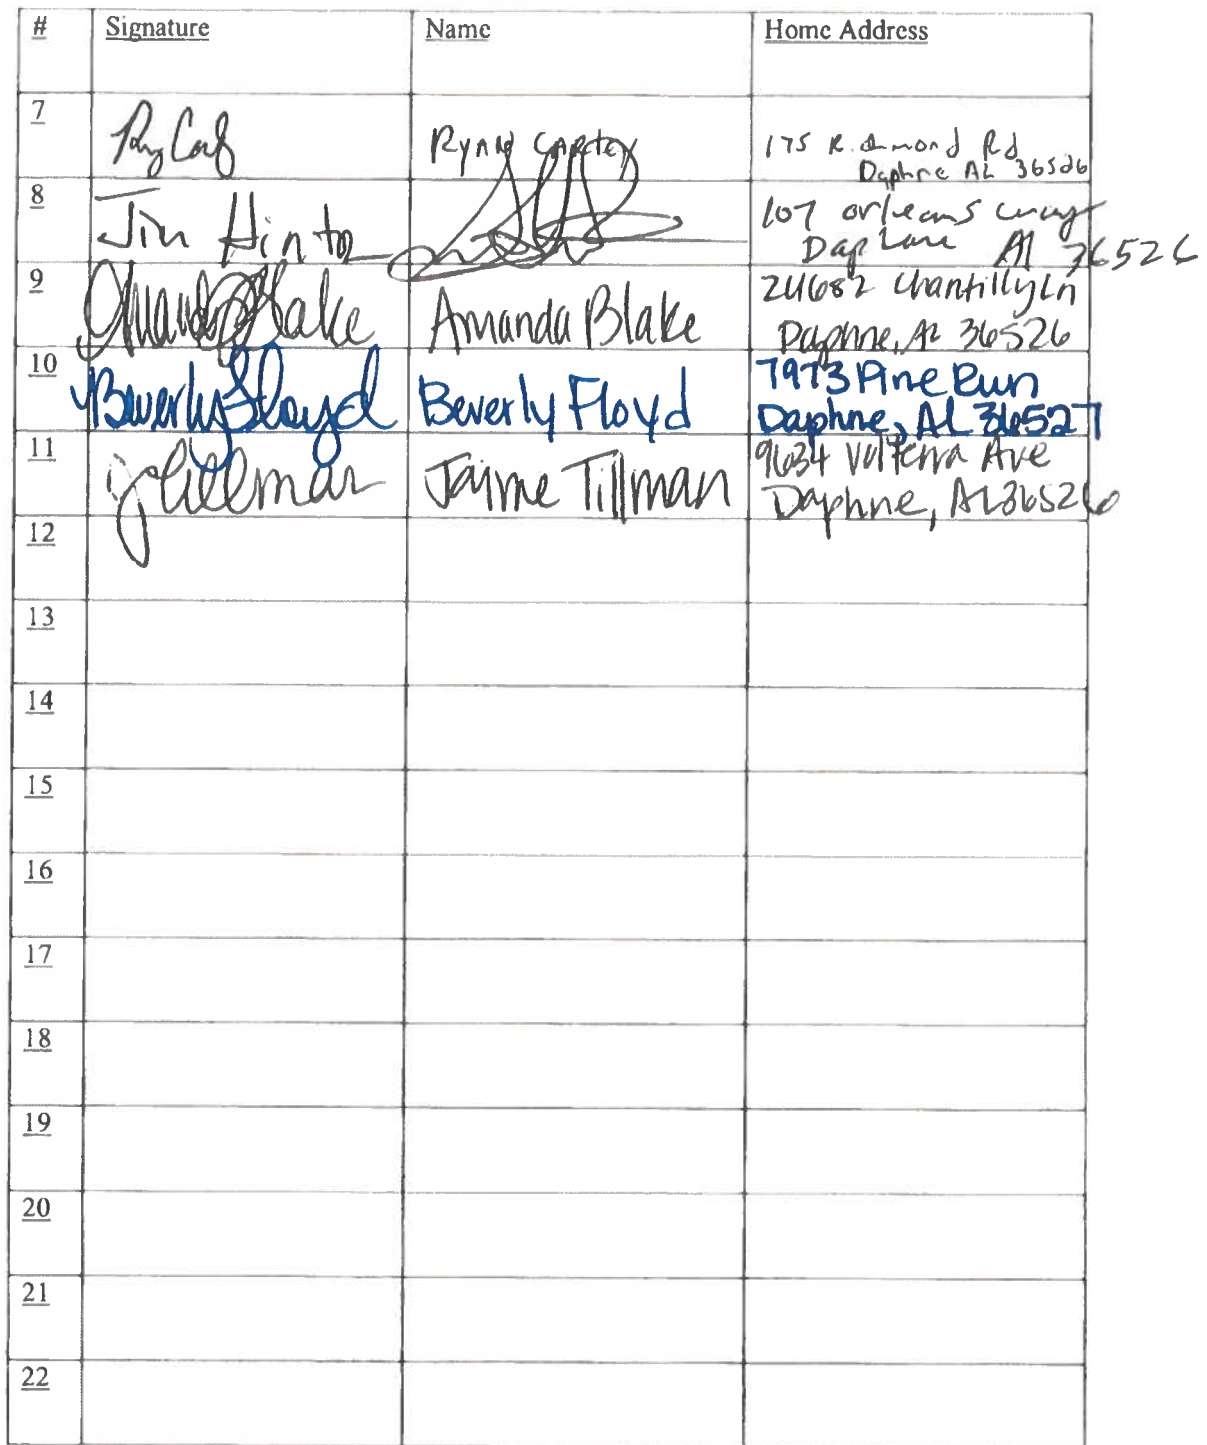 # Signature Name Home Address
7 Rynne Carter 175 Richmond Rd
Daphne AL 36526
8 Jim Hinton 107 orleans way
Daphne Al 36526
9 Amanda Blake Amanda Blake 24682 Chantilly Ln
Daphne, AL 36526
10 Beverly Floyd Beverly Floyd 7973 Pine Run
Daphne, AL 36527
11 JTillman Jaime Tillman 9634 Volterra Ave
Daphne, AL 36526
12
13
14
15
16
17
18
19
20
21
22